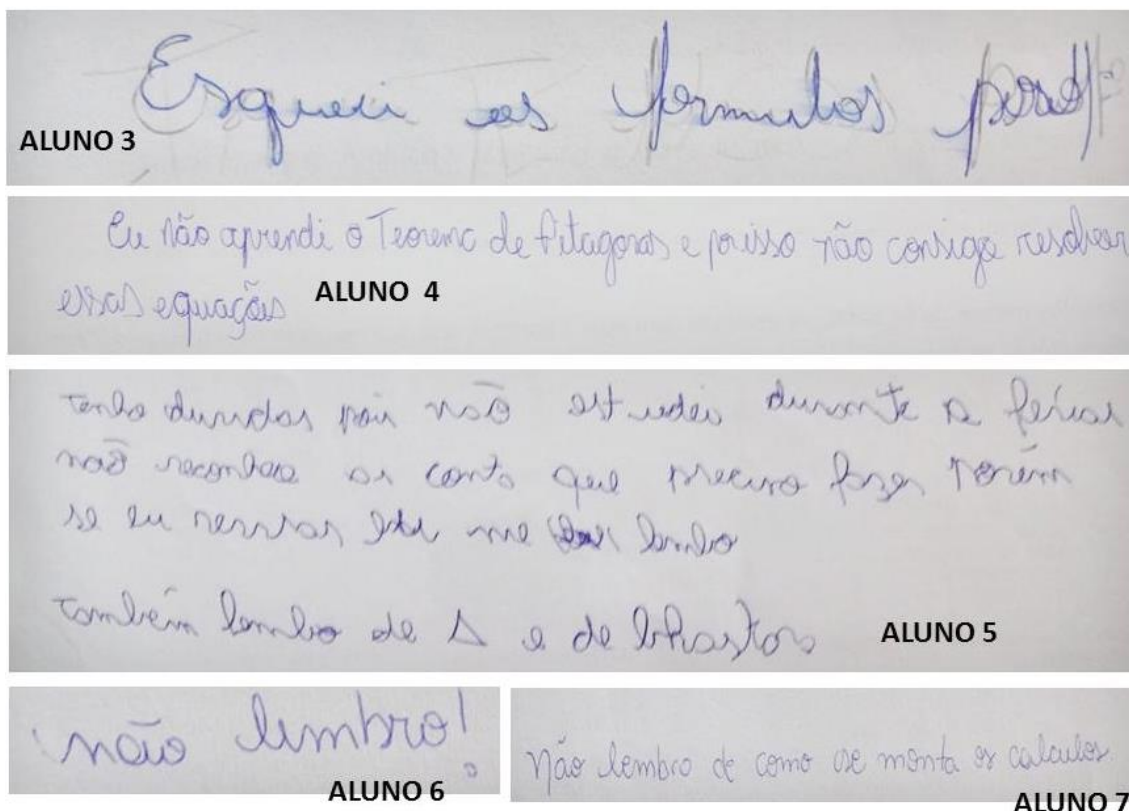 Esqueci as formulas
ALUNO 3
Eu não aprendi o Teorema de Pitagoras e porisso não consigo resolver
essas equações ALUNO 4
tenho duvidas pois não estudei durante a ferias
não reconheço as conto que preciso fazer Porém
se eu revisar me lembo
também lembro de Δ e de bhaskara ALUNO 5
não lembro!
ALUNO 6
não lembro de como se monta os calculos.
ALUNO 7